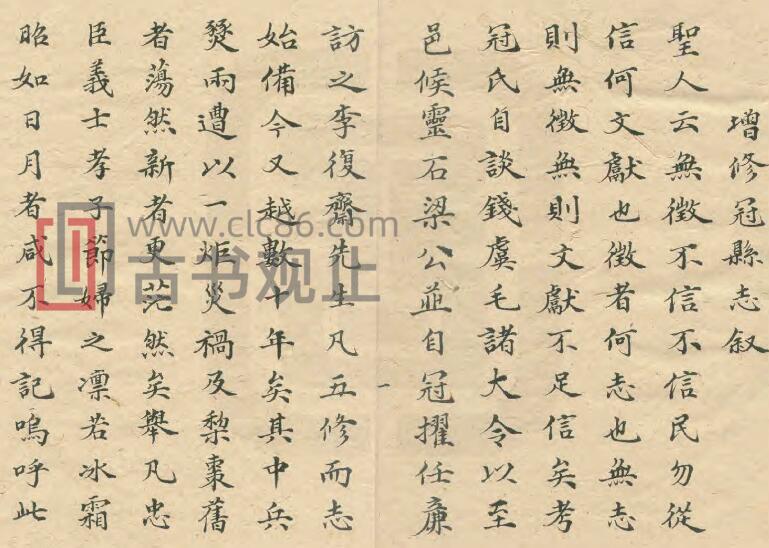 增修冠縣志叙
聖人云無徵不信不信民勿從
信何文獻也徵者何志也無志
則無徵無則文獻不足信矣考
冠氏自談錢虞毛諸大令以至
邑侯靈石梁公並自冠擢任廉
一
訪之李復齋先生凡五修而志
始備今又越數十年矣其中兵
燹雨遭以一炬災禍及梨棗舊
者蕩然新者更茫然矣舉凡忠
臣義士孝子節婦之凛若冰霜
昭如日月者咸不得記嗚呼此
www.clc86.com
古书观止